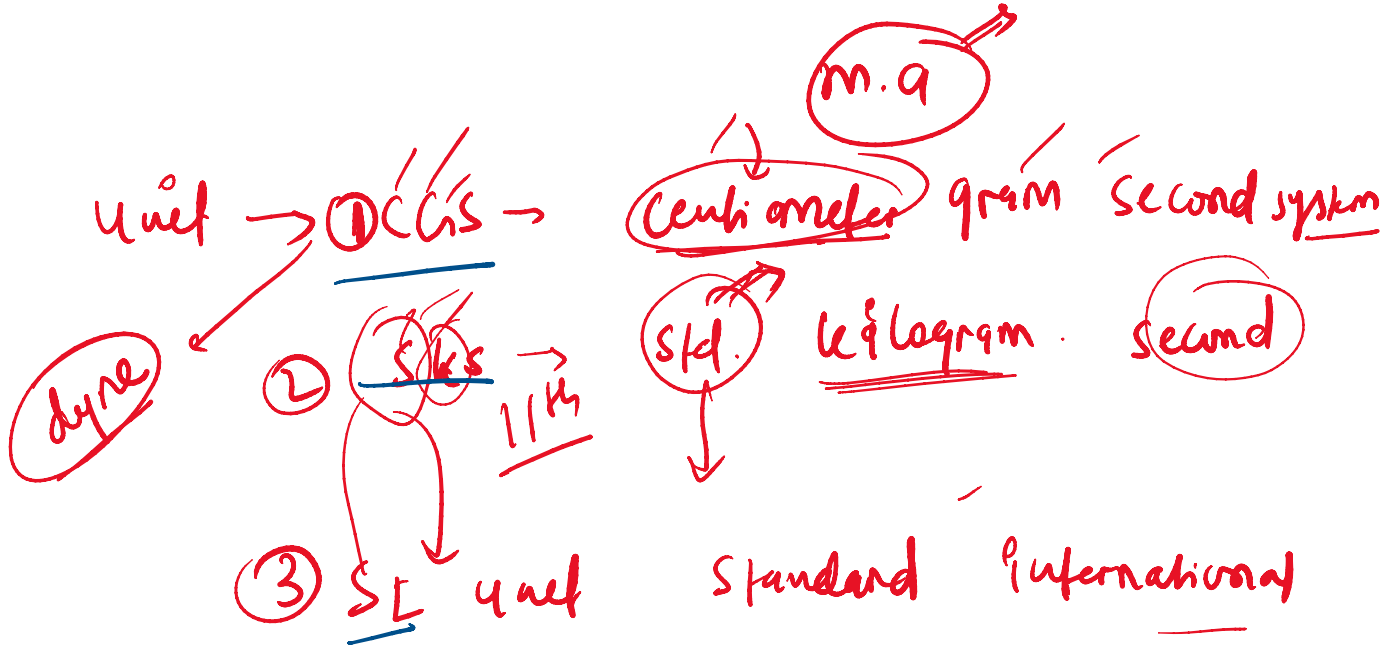 m.a
unit → ① CGS → centimeter gram second system
dyne
② SKS → std. kilogram second
11th
③ SI unit standard international